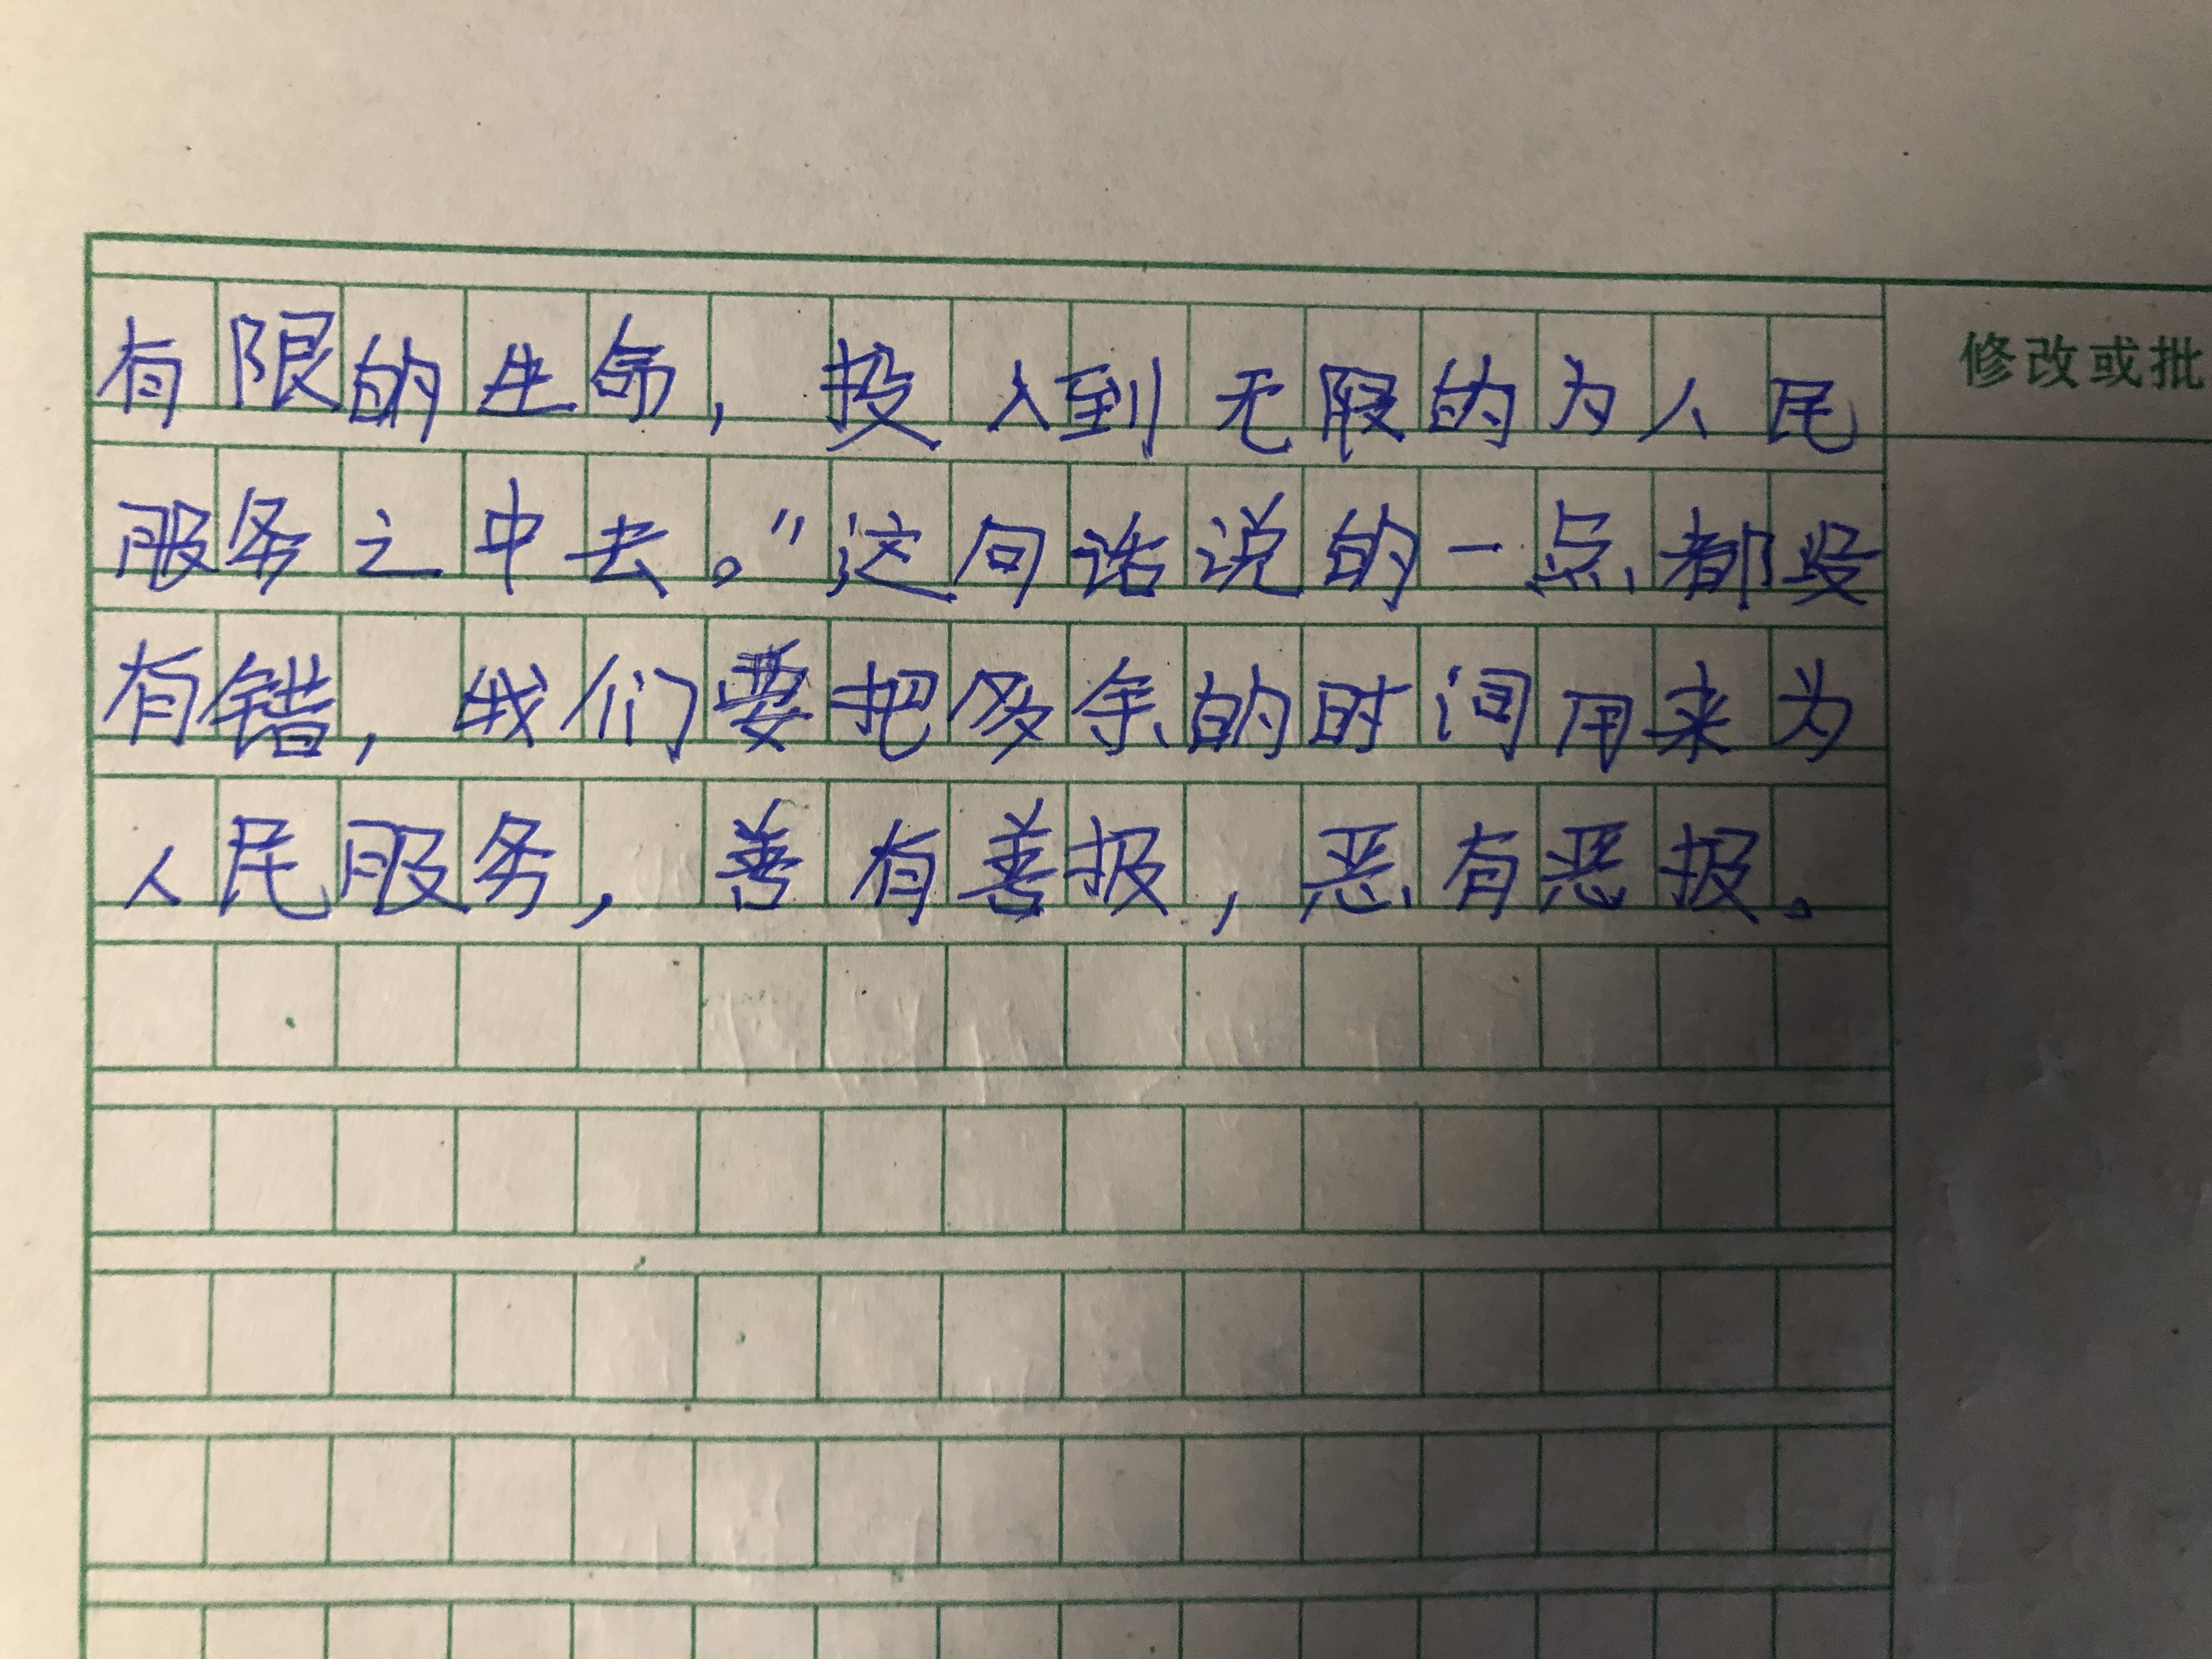 有限的生命，投入到无限的为人民
修改或批
服务之中去。"这句话说的一点都没
有错，我们要把多余的时间用来为
人民服务，善有善报，恶有恶报。